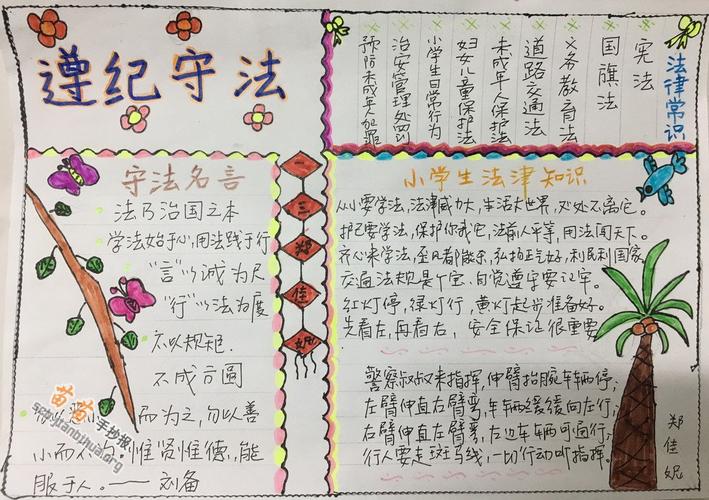 遵纪守法
法律常识
宪法
国旗法
义务教育法
道路交通法
未成年人保护法
妇女儿童保护法
小学生日常行为
治安管理处罚
预防未成年人犯罪
守法名言
法乃治国之本
学法始于心,用法践于行
"言"以诚为尺
"行"以法为度
不以规矩.
不成方圆
而为之,勿以善
小而不 惟贤惟德,能
服于人.——刘备
苗苗
手抄报
一三郑佳妮
小学生法津知识
从小要学法,法津威力大,生活大世界,处处不离它。
护己要学法,保护你我它,法前人平等,用法闯天下。
齐心来学法,歪风都散,弘扬正气好,利民利国家
交通法规是个宝,自觉遵守要记牢。
红灯停,绿灯行,黄灯起步准备好。
先看左,再看右,安全保证很重要
警察叔叔来指挥,伸臂抬腕车辆停,
左臂伸直右臂弯,车辆缓缓向左行,
右臂伸直左臂弯,右边车辆可通行,
行人要走斑马线,一切行动听指挥。
郑佳妮